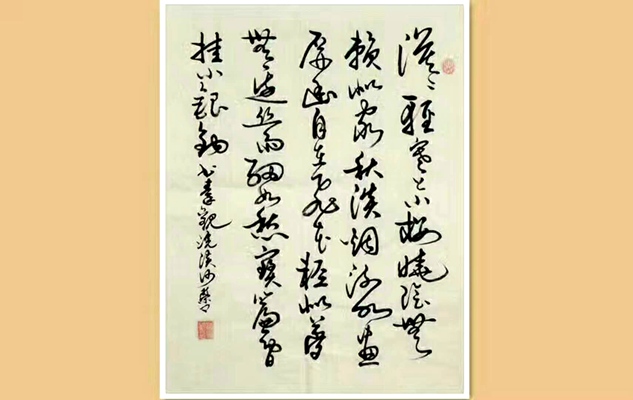 漠〻輕寒上小樓曉陰無
賴似窮秋淡烟流水畫
屏幽自在飛花輕似夢
無邊絲雨細如愁寶簾閒
挂小銀鈎 書秦觀浣溪沙